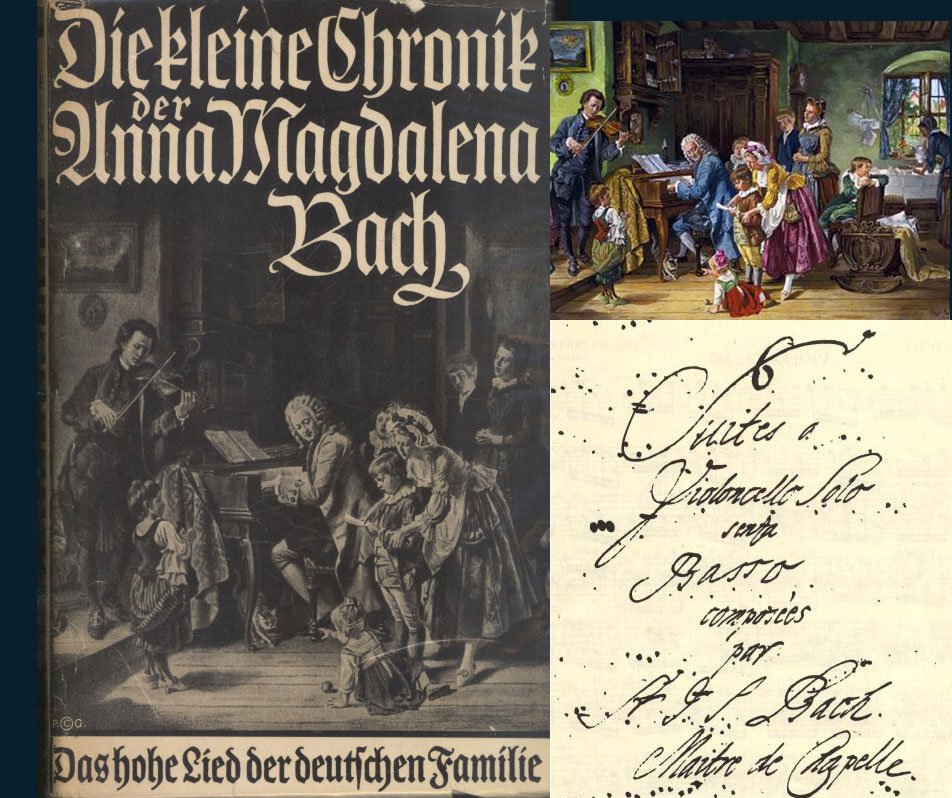 Die kleine Chronik
der
Anna Magdalena
Bach
P.©G.
Das hohe Lied der deutschen Familie
6
Suites a
Violoncello Solo
senza
Basso
composées
par
S.r J. S. Bach.
Maitre de Chapelle.